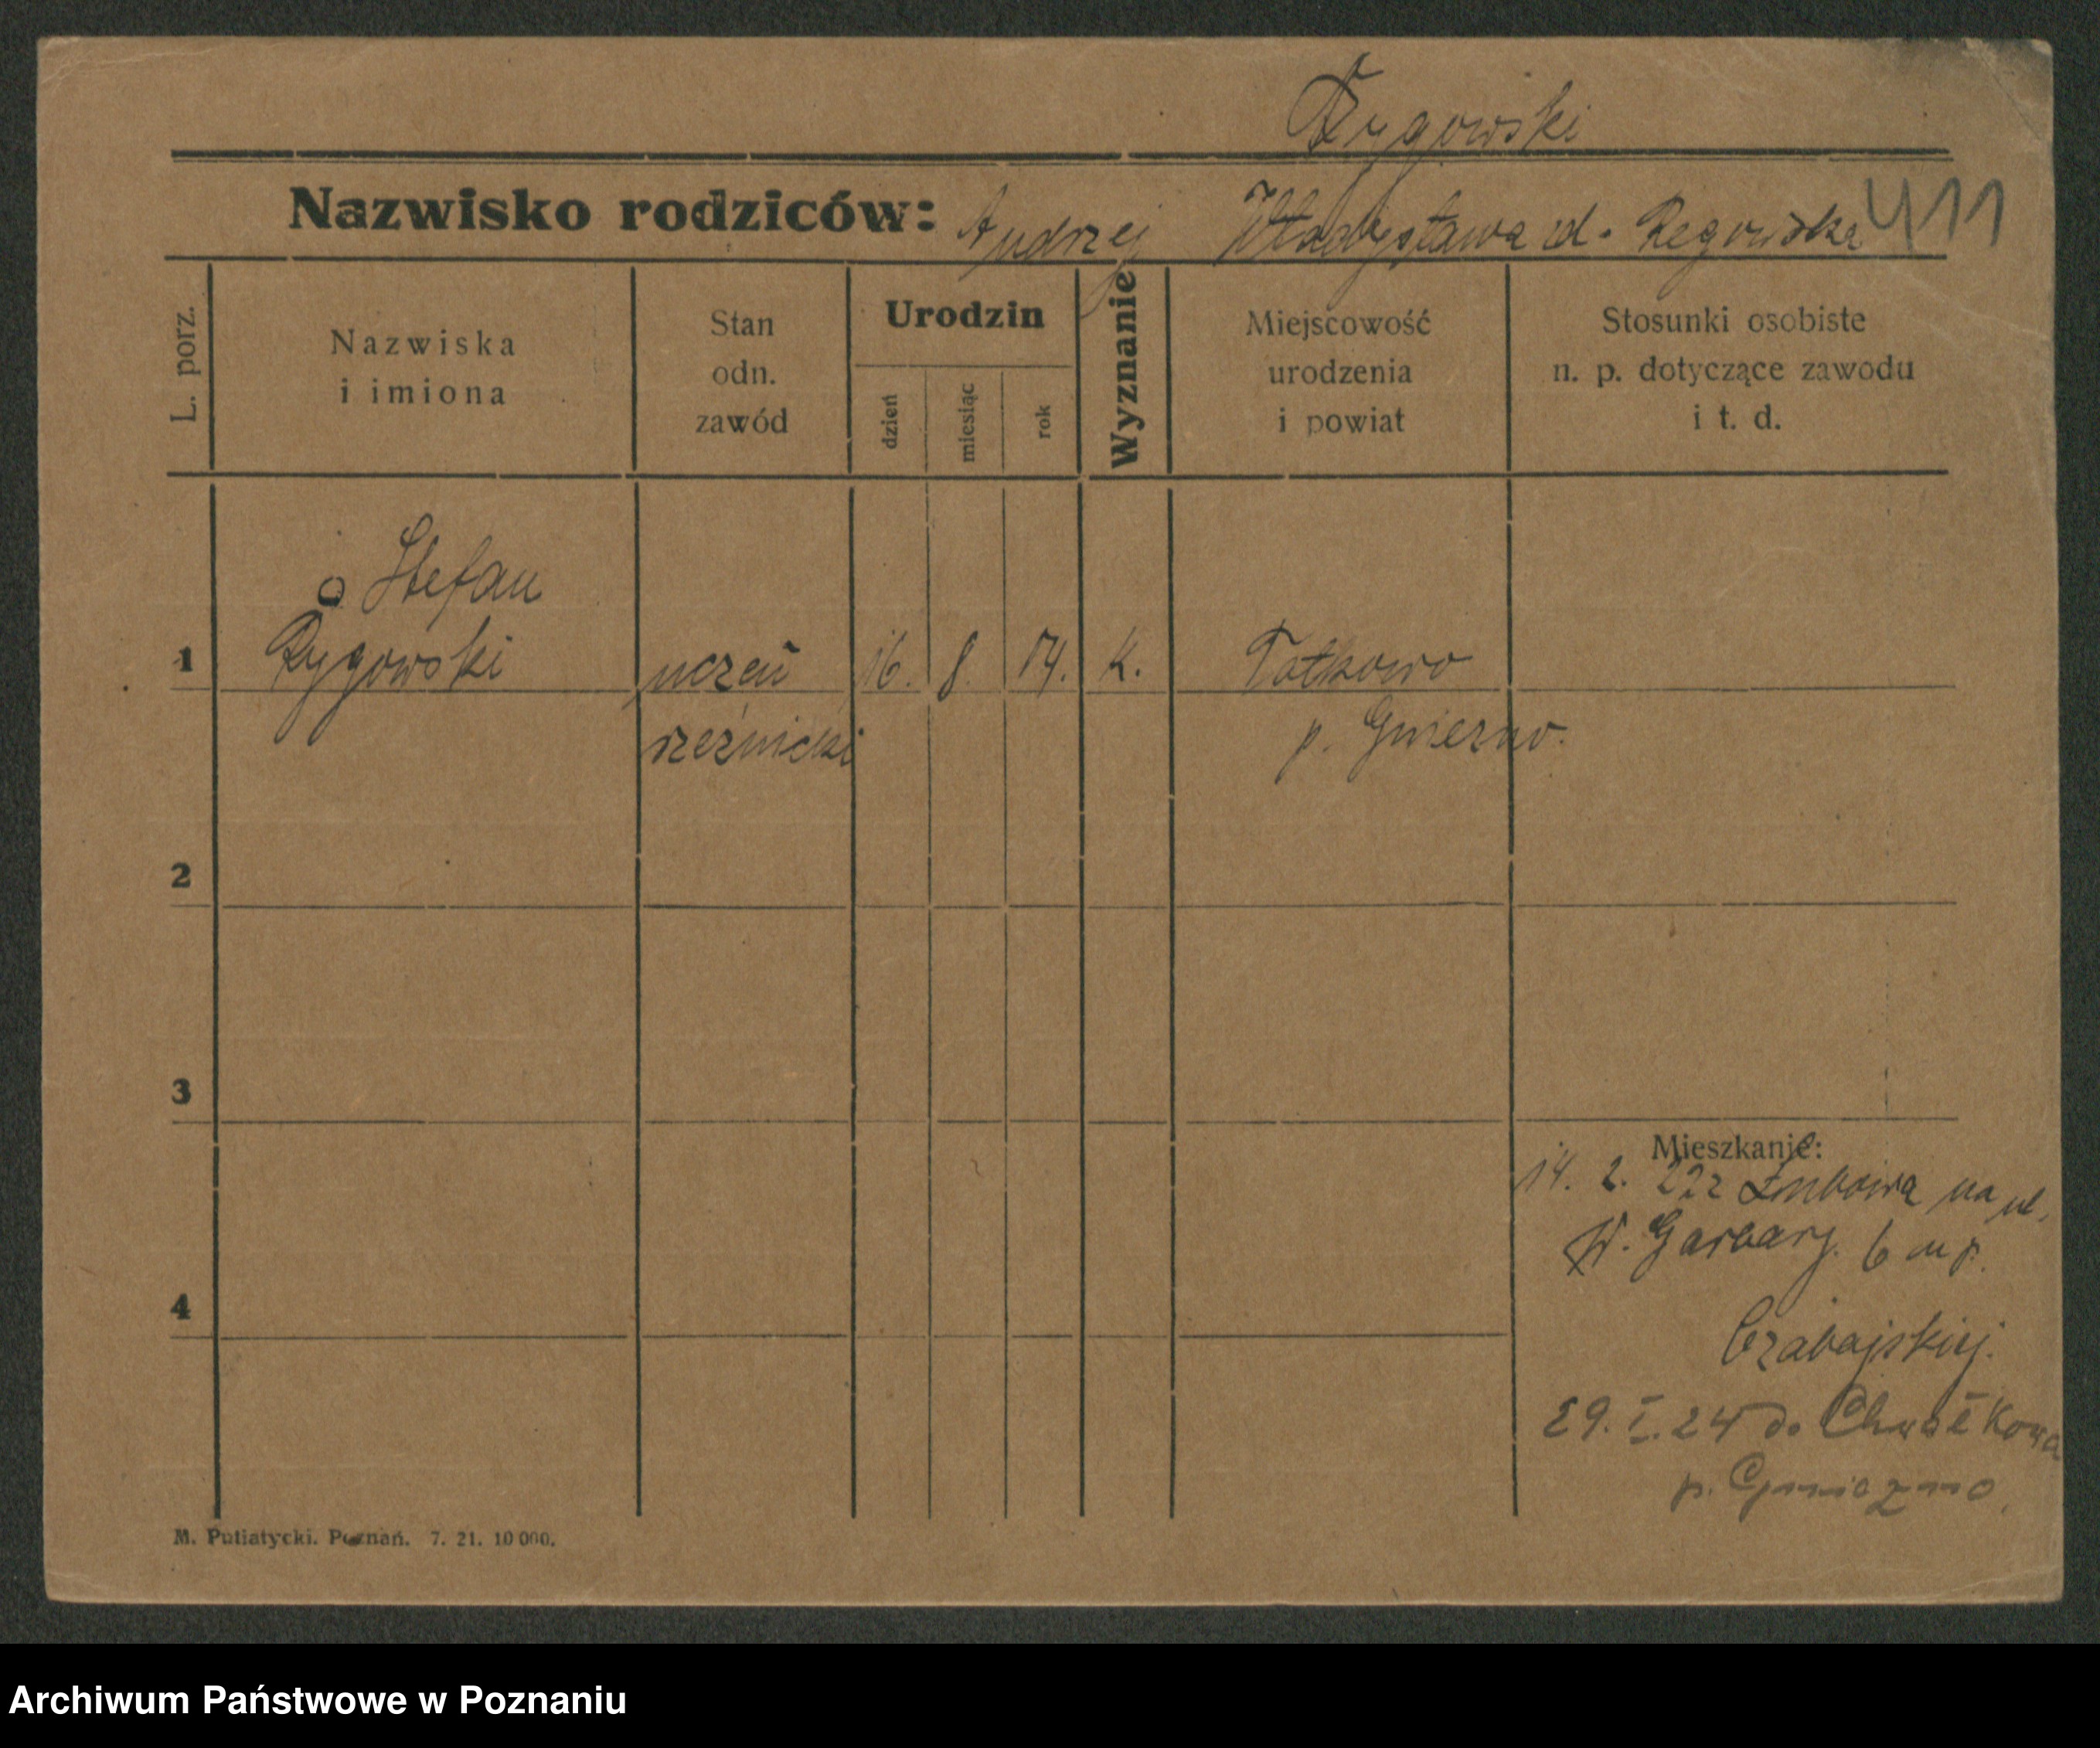 Rygowski
Nazwisko rodziców: Andrzej Władysława zd. Regowska 411
L. porz.
Nazwiska
i imiona
Stan
odn.
zawód
Urodzin
dzień
miesiąc
rok
Wyznanie
Miejscowość
urodzenia
i powiat
Stosunki osobiste
n. p. dotyczące zawodu
i t. d.
Stefan
1 Rygowski uczeń 16. 8. K.
rzeźnicki p. Gniezno.
2
3
Mieszkanie:
14. 2. 22 na ul.
W. Garbary. 6 m p.
4
29. I. 24 do Chwałkowa
p. Gniezno.
M. Putiatycki. Poznań. 7. 21. 10 000.
Archiwum Państwowe w Poznaniu